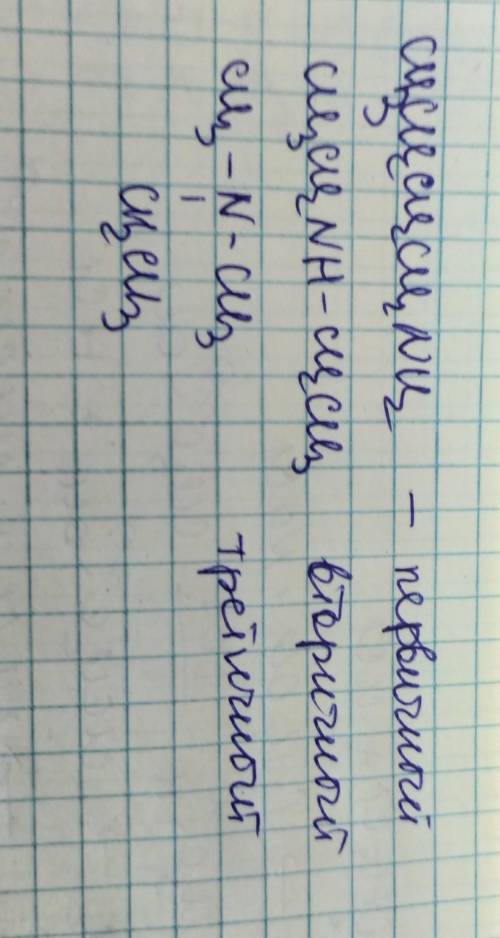 CH₃CH₂CH₂CH₂NH₂ – первичный
CH₃CH₂NH–CH₂CH₃ вторичный
CH₃–N–CH₃ третичный
|
CH₂CH₃